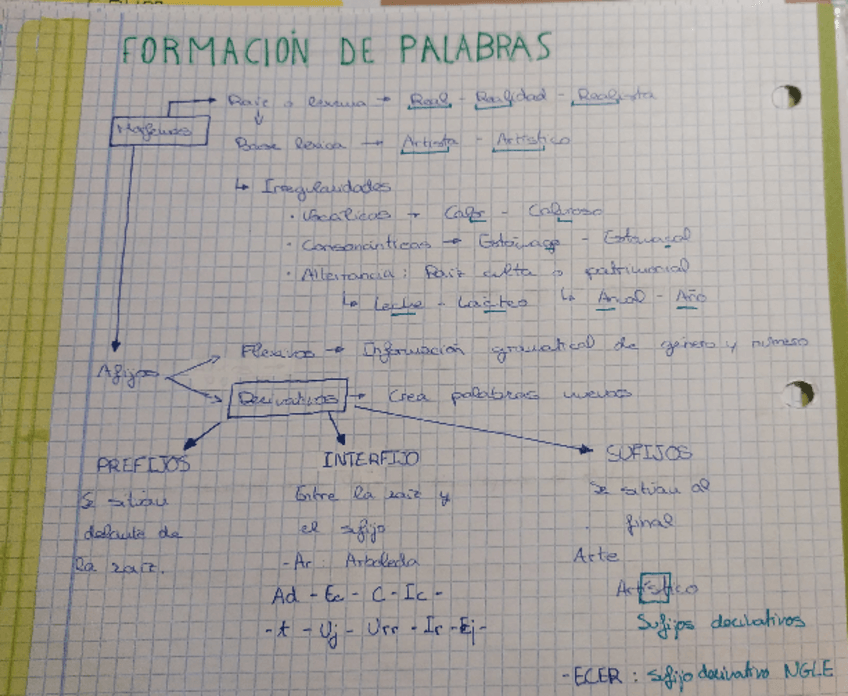 FORMACIÓN DE PALABRAS
Raíz o lexema → Real - Realidad - Realista
Morfemas
Base léxica → Artista - Artístico
↳ Irregularidades
· Vocálicas → Calor - Caluroso
· Consonánticas → Estómago - Estomacal
· Alternancia: Raíz culta o patrimonial
↳ Leche - Lácteo ↳ Anual - Año
Flexivos → Información gramatical de género y número
Afijos
Derivativos → Crea palabras nuevas
PREFIJOS INTERFIJO SUFIJOS
Se sitúan Entre la raíz y Se sitúan al
delante de el sufijo final
la raíz. - Ar Arboleda Arte
Ad - Ec - C - Ic - Artístico
- t - Uj - Urr - Ir - Ej - Sufijos derivativos
- ECER : sufijo derivativo NGLE